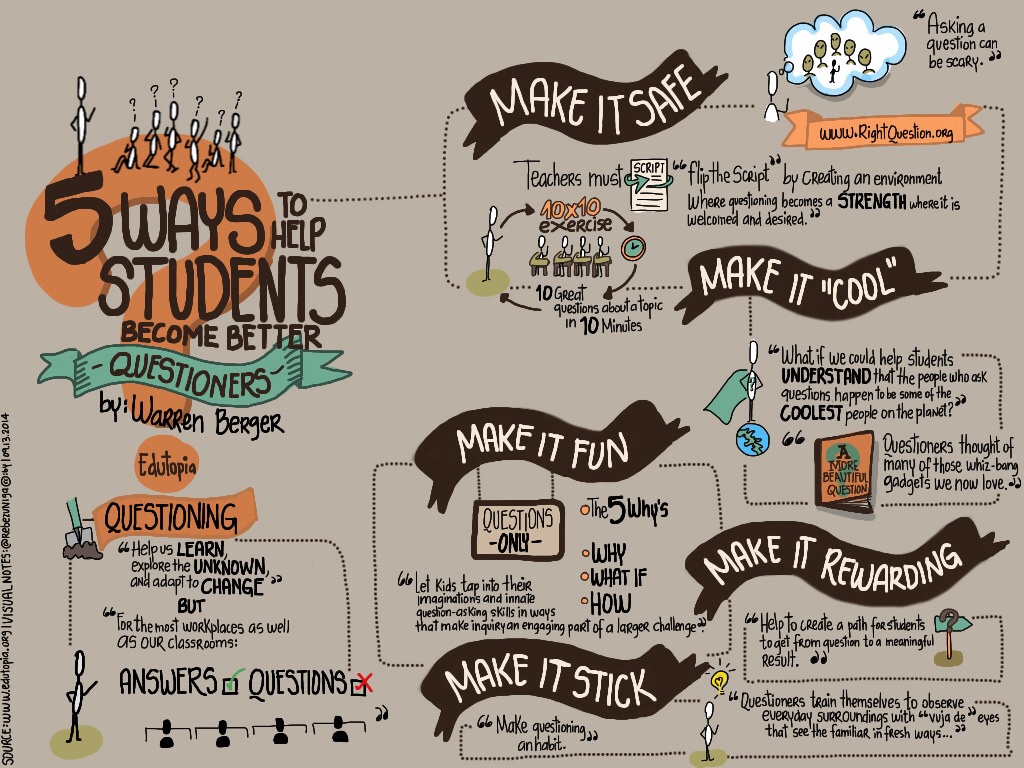 5 WAYS TO
HELP
STUDENTS
BECOME BETTER
- QUESTIONERS -
by: Warren Berger
Edutopia
QUESTIONING
"Help us LEARN,
explore the UNKNOWN,
and adapt to CHANGE"
BUT
"For the most workplaces as well
as our classrooms:
ANSWERS QUESTIONS"
MAKE IT SAFE
"Asking a
question can
be scary."
www.RightQuestion.org
Teachers must
SCRIPT
"flip the Script" by creating an environment
Where questioning becomes a STRENGTH where it is
welcomed and desired."
10x10
exercise
10 Great
questions about a topic
in 10 Minutes
MAKE IT "COOL"
"What if we could help students
UNDERSTAND that the people who ask
questions happen to be some of the
COOLEST people on the planet?"
A
MORE
BEAUTIFUL
QUESTION
"Questioners thought of
many of those whiz-bang
gadgets we now love."
MAKE IT FUN
QUESTIONS
-ONLY-
The 5 Why's
WHY
WHAT IF
HOW
"Let Kids tap into their
imaginations and innate
question-asking skills in ways
that make inquiry an engaging part of a larger challenge"
MAKE IT REWARDING
"Help to create a path for students
to get from question to a meaningful
result."
?
MAKE IT STICK
"Make questioning
an habit."
"Questioners train themselves to observe
everyday surroundings with "vuja de" eyes
that see the familiar in fresh ways..."
SOURCE: www.edutopia.org | VISUAL NOTES: @rebeuniga